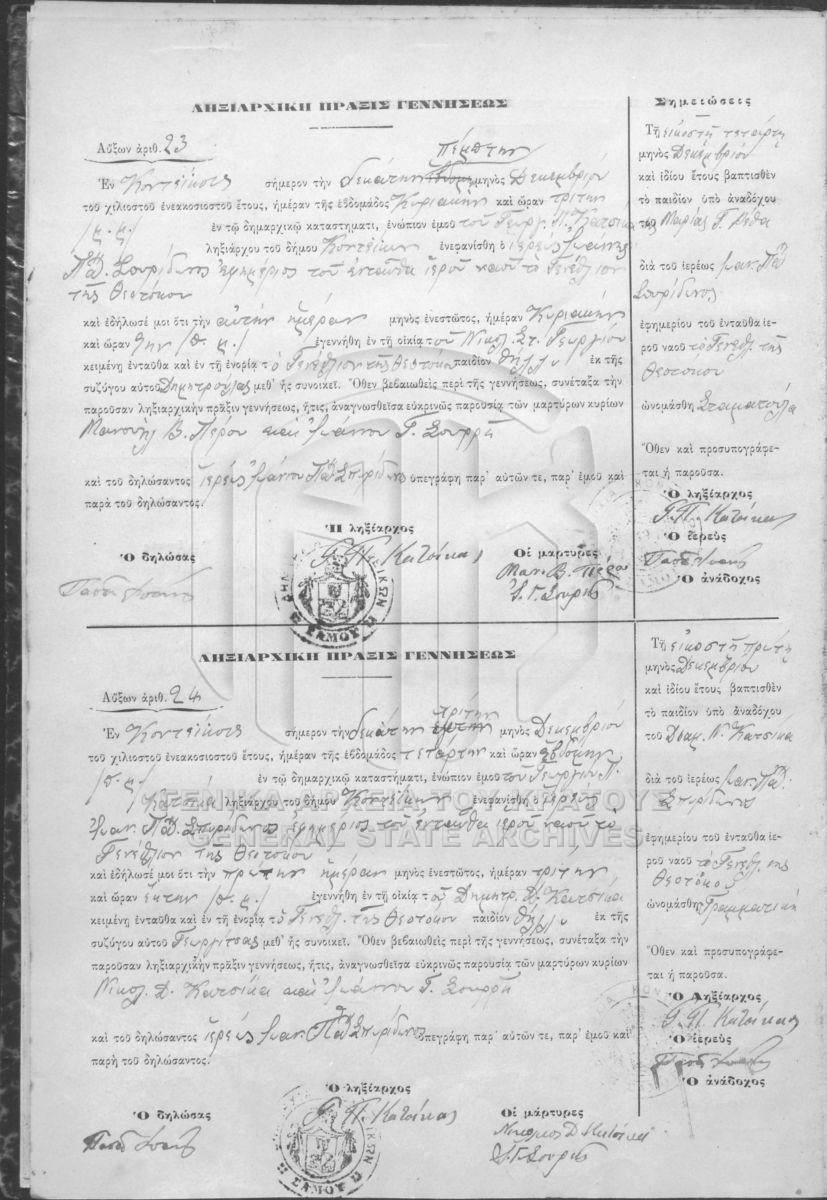 ΛΗΞΙΑΡΧΙΚΗ ΠΡΑΞΙΣ ΓΕΝΝΗΣΕΩΣ
Αὔξων ἀριθ. 23
πέμπτην
Ἐν Κοντεΐκοις σήμερον τὴν δεκάτην μηνὸς Δεκεμβρίου
τοῦ χιλιοστοῦ ἐνεακοσιοστοῦ ἔτους, ἡμέραν τῆς ἑβδομάδος Κυριακὴν καὶ ὥραν τρίτην
ἐν τῷ δημαρχικῷ καταστήματι, ἐνώπιον ἐμοῦ τοῦ Γεωργ. Π. Κατσίκα
ληξιάρχου τοῦ δήμου Κοντεΐκων ἐνεφανίσθη ὁ ἱερεὺς Ἰωάννης
Πᾶ Σπυρίδωνος ἐφημέριος τοῦ ἐνταῦθα ἱεροῦ ναοῦ τὸ Γενέθλιον
τῆς Θεοτόκου
καὶ ἐδήλωσέ μοι ὅτι τὴν αὐτὴν ἡμέραν μηνὸς ἐνεστῶτος, ἡμέραν Κυριακὴν
καὶ ὥραν ἐγεννήθη ἐν τῇ οἰκίᾳ τοῦ Νικολ. Στ. Γεωργίου
κειμένῃ ἐνταῦθα καὶ ἐν τῇ ἐνορίᾳ τὸ Γενέθλιον τῆς Θεοτόκου παιδίον θῆλυ ἐκ τῆς
συζύγου αὐτοῦ Δημητρούλας μεθ' ἧς συνοικεῖ. Ὅθεν βεβαιωθεὶς περὶ τῆς γεννήσεως, συνέταξα τὴν
παροῦσαν ληξιαρχικὴν πρᾶξιν γεννήσεως, ἥτις, ἀναγνωσθεῖσα εὐκρινῶς παρουσίᾳ τῶν μαρτύρων κυρίων
Μανουὴλ Β. Πέρου καὶ Ἰωάννου Γ. Σουρρῆ
καὶ τοῦ δηλώσαντος ἱερέως Ἰωάννου Πᾶ Σπυρίδωνος ὑπεγράφη παρ' αὐτῶν τε, παρ' ἐμοῦ καὶ
παρὰ τοῦ δηλώσαντος.
Ἡ ληξίαρχος
Ὁ δηλώσας
Γ. Π. Κατσίκας
Οἱ μάρτυρες
Μαν. Β. Πέρου
Ἰ. Γ. Σουρρῆς
ΣΑΜΟΥ
Σημειώσεις
Τῇ εἰκοστῇ τετάρτῃ
μηνὸς Δεκεμβρίου
καὶ ἰδίου ἔτους βαπτισθὲν
τὸ παιδίον ὑπὸ ἀναδόχου
τῆς Μαρίας Γ.
διὰ τοῦ ἱερέως Ἰωαν. Πᾶ
Σπυρίδωνος
ἐφημερίου τοῦ ἐνταῦθα ἱε-
ροῦ ναοῦ τὸ Γενέθλ. τῆς
Θεοτόκου
ὠνομάσθη Σταματούλα
Ὅθεν καὶ προσυπογράφε-
ται ἡ παροῦσα.
Ὁ ληξίαρχος
Γ. Π. Κατσίκας
Ὁ ἱερεὺς
Ὁ ἀνάδοχος
ΛΗΞΙΑΡΧΙΚΗ ΠΡΑΞΙΣ ΓΕΝΝΗΣΕΩΣ
Αὔξων ἀριθ. 24
τρίτην
Ἐν Κοντεΐκοις σήμερον τὴν δεκάτην μηνὸς Δεκεμβρίου
τοῦ χιλιοστοῦ ἐνεακοσιοστοῦ ἔτους, ἡμέραν τῆς ἑβδομάδος τετάρτην καὶ ὥραν ἑβδόμην
/π.μ./ ἐν τῷ δημαρχικῷ καταστήματι, ἐνώπιον ἐμοῦ τοῦ Γεωργίου Π.
Κατσίκα ληξιάρχου τοῦ δήμου Κοντεΐκων ἐνεφανίσθη ὁ ἱερεὺς
Ἰωαν. Πᾶ Σπυρίδωνος ἐφημέριος τοῦ ἐνταῦθα ἱεροῦ ναοῦ τὸ
Γενέθλιον τῆς Θεοτόκου
καὶ ἐδήλωσέ μοι ὅτι τὴν πρώτην ἡμέραν μηνὸς ἐνεστῶτος, ἡμέραν τρίτην
καὶ ὥραν ἕκτην /π.μ./ ἐγεννήθη ἐν τῇ οἰκίᾳ τοῦ Δημητρ. Δ. Κατσίκα
κειμένῃ ἐνταῦθα καὶ ἐν τῇ ἐνορίᾳ τὸ Γενέθλ. τῆς Θεοτόκου παιδίον θῆλυ ἐκ τῆς
συζύγου αὐτοῦ Γεωργίτσας μεθ' ἧς συνοικεῖ. Ὅθεν βεβαιωθεὶς περὶ τῆς γεννήσεως, συνέταξα τὴν
παροῦσαν ληξιαρχικὴν πρᾶξιν γεννήσεως, ἥτις, ἀναγνωσθεῖσα εὐκρινῶς παρουσίᾳ τῶν μαρτύρων κυρίων
Νικολ. Δ. Κατσίκα καὶ Ἰωάννου Γ. Σουρρῆ
καὶ τοῦ δηλώσαντος ἱερέως Ἰωαν. Πᾶ Σπυρίδωνος ὑπεγράφη παρ' αὐτῶν τε, παρ' ἐμοῦ καὶ
παρὴ τοῦ δηλώσαντος.
Ὁ ληξίαρχος
Ὁ δηλώσας
Γ. Π. Κατσίκας
Οἱ μάρτυρες
Νικόλαος Δ. Κατσίκας
Ἰ. Γ. Σουρρῆς
ΣΑΜΟΥ
Τῇ εἰκοστῇ πρώτῃ
μηνὸς Δεκεμβρίου
καὶ ἰδίου ἔτους βαπτισθὲν
τὸ παιδίον ὑπὸ ἀναδόχου
τοῦ Διαμ. Ν. Κατσίκα
διὰ τοῦ ἱερέως Ἰωαν. Πᾶ
Σπυρίδωνος
ἐφημερίου τοῦ ἐνταῦθα ἱε-
ροῦ ναοῦ τὸ Γενέθλ. τῆς
Θεοτόκου
ὠνομάσθη Γραμματικὴ
Ὅθεν καὶ προσυπογράφε-
ται ἡ παροῦσα.
Ὁ ληξίαρχος
Γ. Π. Κατσίκας
Ὁ ἱερεὺς
Ὁ ἀνάδοχος
ΓΕΝΙΚΑ ΑΡΧΕΙΑ ΤΟΥ ΚΡΑΤΟΥΣ
GENERAL STATE ARCHIVES